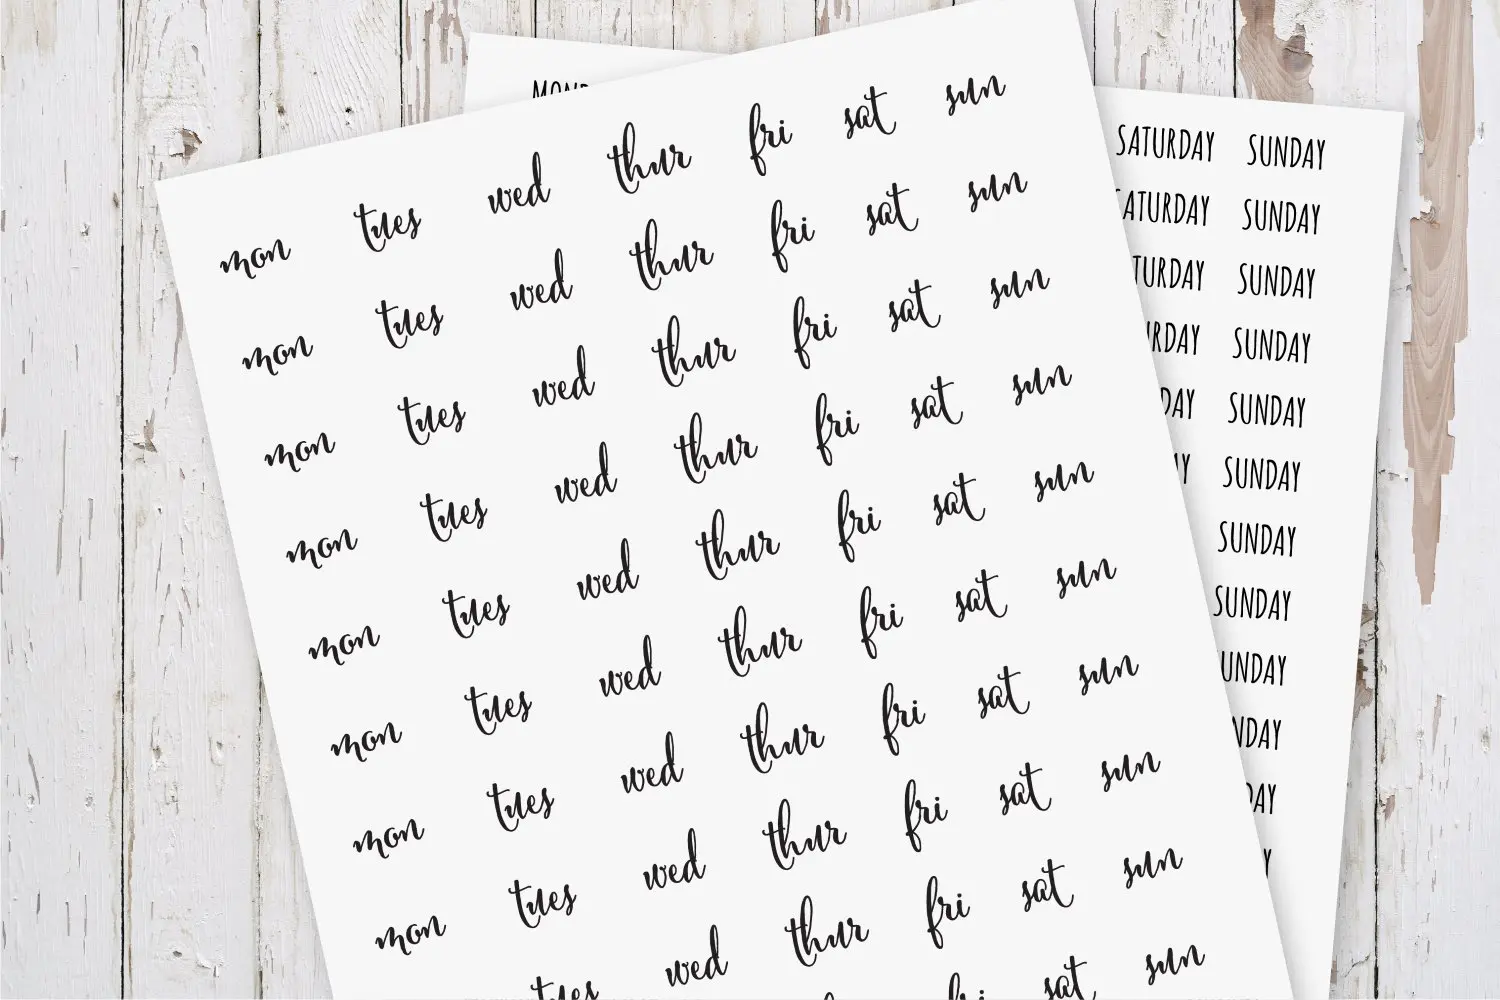 mon tues wed thur fri sat sun
mon tues wed thur fri sat sun
mon tues wed thur fri sat sun
mon tues wed thur fri sat sun
mon tues wed thur fri sat sun
mon tues wed thur fri sat sun
mon tues wed thur fri sat sun
mon tues wed thur fri sat sun
tues wed thur fri sat sun
fri sat sun
MOND
SATURDAY SUNDAY
ATURDAY SUNDAY
TURDAY SUNDAY
RDAY SUNDAY
DAY SUNDAY
Y SUNDAY
SUNDAY
SUNDAY
UNDAY
NDAY
DAY
Y